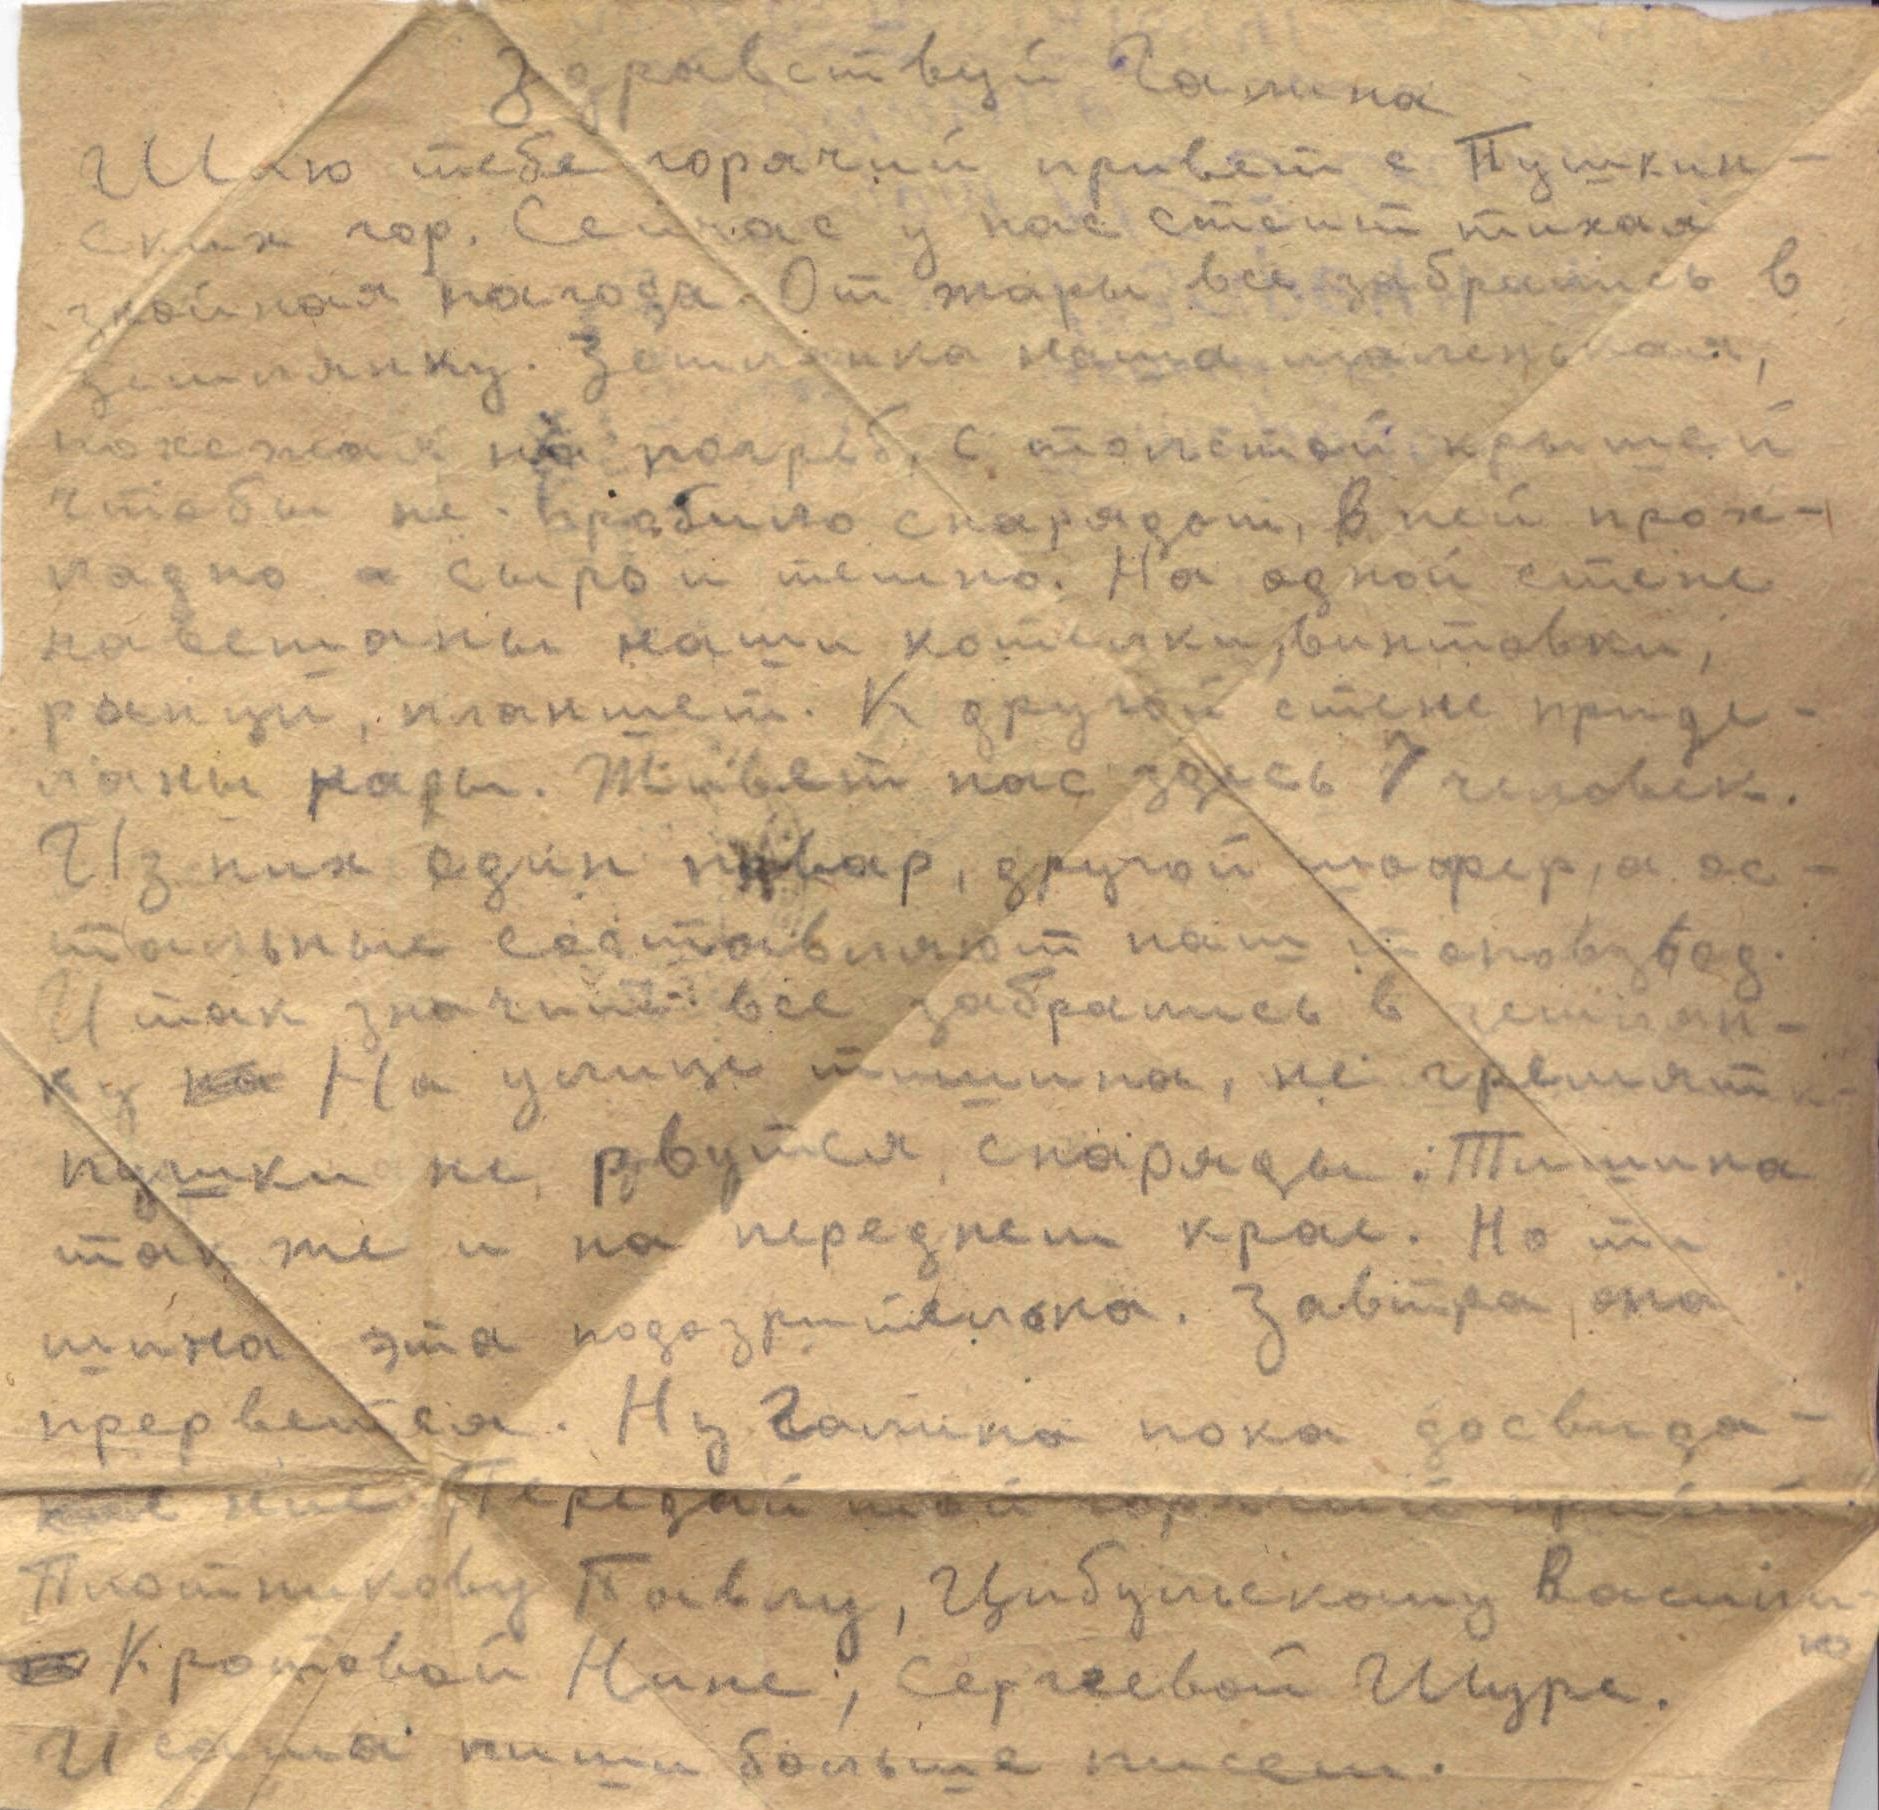 Здравствуй Галина
Шлю тебе горячий привет с Пушкин-
ских гор. Сейчас у нас стоит тихая
знойная погода. От жары все забрались в
землянку. Землянка наша маленькая,
похожая на погреб, с толстой крышей
чтобы не пробило снарядом, В ней прох-
ладно а сыро и темно. На одной стене
навешаны наши котелки, винтовки,
ранцы, планшет. К другой стене приде-
ланы нары. Живет нас здесь 7 человек.
Из них один повар, другой шофер, а ос-
тальные составляют наш топовзвод.
И так значит все забрались в землян-
ку На улице тишина, не гремят
пушки не рвутся снаряды. Тишина
так же и на переднем крае. Но ти
шина эта подозрительна. Завтра она
прервется. Ну Галина пока досвида-
ние. Передай мой горячий привет
Плотникову Павлу, Цибульскому Васили-
ю
Кротовой Нине, Сергеевой Шуре.
И сама пиши больше писем.